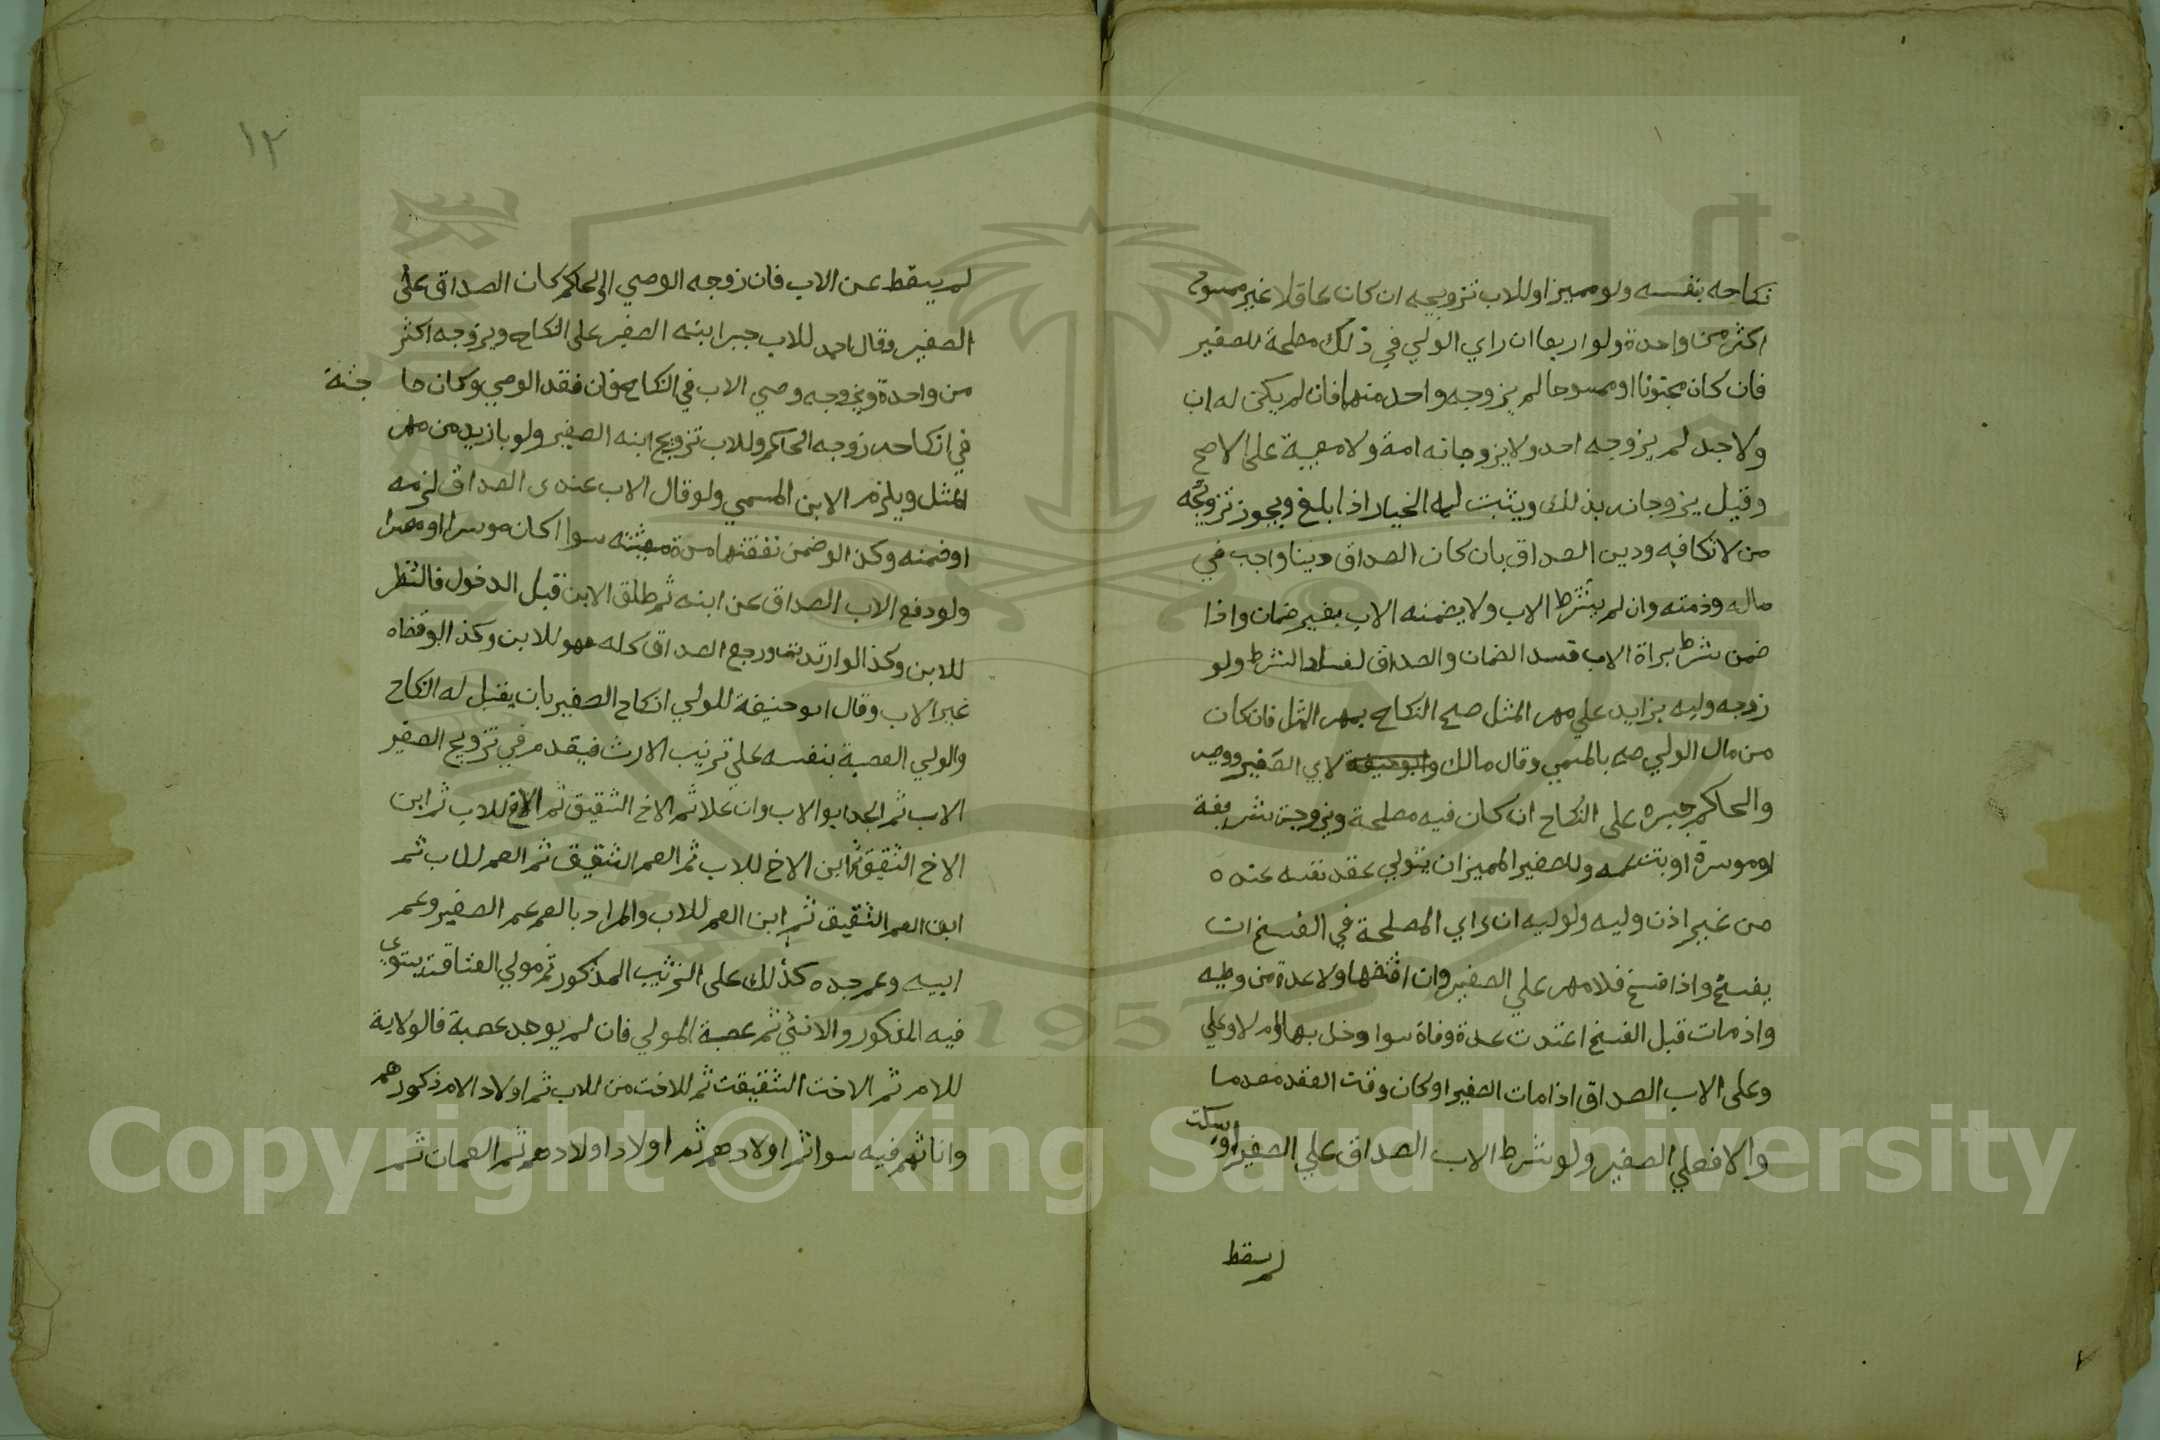 نكاحه بنفسه ولو مميزا وللاب تزويجه ان كان عاقلا غير ممسوح
اكثر من واحدة ولو اربعا ان راي الولي في ذلك مصلحة للصغير
فان كان مجنونا او ممسوحا لم يزوجه واحد منهما فان لم يكن له اب
ولا جد لم يزوجه احد ولا يزوجانه امة ولا معيبة على الاصح
وقيل يزوجانه بذلك ويثبت له الخيار اذا بلغ ويجوز تزويجه
من لا تكافيه ودين الصداق بان كان الصداق دينا واجب في
ماله وذمته وان لم يشترط الاب ولا يضمنه الاب بغير ضمان واذا
ضمن بشرط براة الاب فسد الضمان والصداق لفساد الشرط ولو
زوجه وليه بزايد علي مهر المثل صح النكاح بمهر المثل فان كان
من مال الولي صح بالمسمي وقال مالك وابو حنيفة لابي الصغير ووصيه
والحاكم جبره على النكاح ان كان فيه مصلحة ويزوجه شريفة
او موسرة او بنت عمه وللصغير المميز ان يتولي عقد نفسه عنده
من غير اذن وليه ولوليه ان راي المصلحة في الفسخ ان
يفسخ واذا فسخ فلا مهر علي الصغير وان افتضها ولا عدة من وطيه
واذ مات قبل الفسخ اعتدت عدة وفاة سوا دخل بها ام لا وعلي
وعلى الاب الصداق اذا مات الصغير او كان وقت العقد معدما
والا فعلي الصغير ولو شرط الاب الصداق علي الصغير او سكت
لم يسقط
١٢
لم يسقط عن الاب فان زوجه الوصي او الحاكم كان الصداق على
الصغير وقال احمد للاب جبر ابنه الصغير على النكاح ويزوجه اكثر
من واحدة ويزوجه وصي الاب في النكاح فان فقد الوصي وكان حا جته
في انكاحه زوجه الحاكم وللاب تزويج ابنه الصغير ولو بازيد من مهر
المثل ويلزم الابن المسمي ولو قال الاب عندي الصداق لزمه
او ضمنه وكذا لو ضمن نفقتها مدة معينة سوا اكان موسرا او معسرا
ولو دفع الاب الصداق عن ابنه ثم طلق الابن قبل الدخول فالشطر
للابن وكذا لو ارتدت ورجع الصداق كله فهو للابن وكذا لو قضاه
غير الاب وقال ابو حنيفة للولي انكاح الصغير بان يقبل له النكاح
والولي العصبة بنفسه علي ترتيب الارث فيقدم في تزويج الصغير
الاب ثم الجد ابو الاب وان علا ثم الاخ الشقيق ثم الاخ للاب ثم ابن
الاخ الشقيق ثم ابن الاخ للاب ثم العم الشقيق ثم العم للاب ثم
ابن العم الشقيق ثم ابن العم للاب والمراد بالعم عم الصغير وعم
ابيه وعم جده كذلك على الترتيب المذكور ثم مولي العتاقة يستوي
فيه الذكور والانثي ثم عصبة المولي فان لم يوجد عصبة فالولاية
للام ثم الاخت الشقيقت ثم للاخت من للاب ثم اولاد الام ذكورهم
واناثهم فيه سوا ثم اولادهم ثم اولاد اولادهم ثم العمات ثم
1957
Copyright © King Saud University